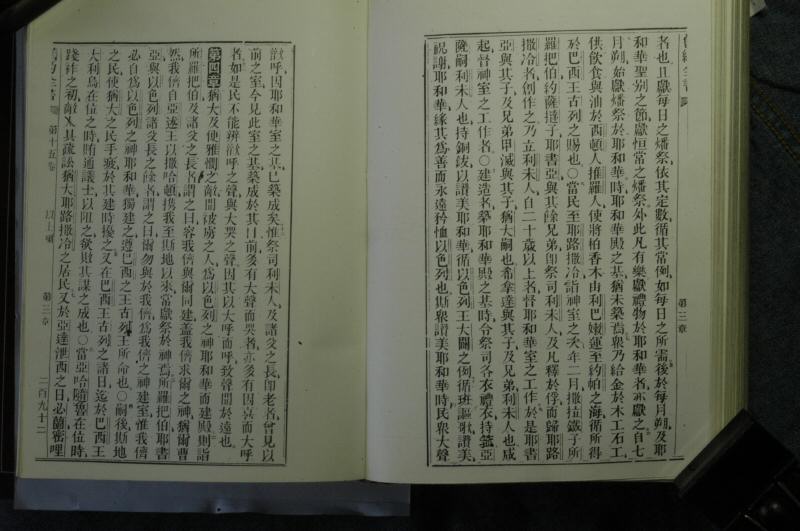 第三章
者也且獻每日之燔祭依其定數循其常例如每日之所需後於每月朔及耶
和華聖別之節獻恒常之燔祭外此凡有樂獻禮物於耶和華者亦獻之自七
月朔始獻燔祭於耶和華時耶和華殿之基猶未築焉衆乃給金於木工石工
供飲食與油於西頓人推羅人使將柏香木由利巴嫩運至約帕之海循所得
於巴西王古列之賜也○當民至耶路撒冷詣神室之次年二月撒拉鐵子所
羅把伯約薩撻子耶書亞與其餘兄弟卽祭司利未人及凡釋於俘而歸耶路
撒冷者創作之乃立利未人自二十歲以上者督耶和華室之工作於是耶書
亞與其子及兄弟甲滅與其子猶大嗣也希拿達與其子及兄弟利未人也咸
起督神室之工作者○建造者築耶和華殿之基時令祭司各衣禮衣持箛亞
薩嗣利未人也持銅鈸以讃美耶和華循以色列王大闢之例循班謳歌讃美
祝謝耶和華緣其爲善而永遠矜恤以色列也斯衆讃美耶和華時民衆大聲
歡呼因耶和華室之基已築成矣惟祭司利未人及諸父之長卽老者曾見以
前之室今見此室之基築成於其目前多有大聲而哭者亦多有因喜而大呼
者如是民不能辨歡呼之聲與大哭之聲因其以大呼而呼致聲聞於遠也
第四章 猶大及便雅憫之敵聞被虜之人爲以色列之神耶和華而建殿則詣
所羅把伯及諸父之長者謂之曰容我儕與爾同建蓋我儕求爾之神猶爾曹
然我儕自亞述王以撒哈頓携我至斯地以來當獻祭於神焉所羅把伯耶書
亞與以色列諸父長之餘者謂之曰爾勿與於我儕爲我儕之神建室惟我儕
必自爲以色列之神耶和華獨建之遵巴西之王古列王所命也○嗣後斯地
之民使猶大之民手疲於其建時擾之又在巴西王古列之諸日迄於巴西王
大利烏在位之時賄通議士以阻之致敗其謀之成也○當亞哈隨魯在位時
踐祚之初敵人具疏訟猶大耶路撒冷之居民又於亞達泄西之日必蘭密哩
第十五卷
以士喇
第三章
二百九十二